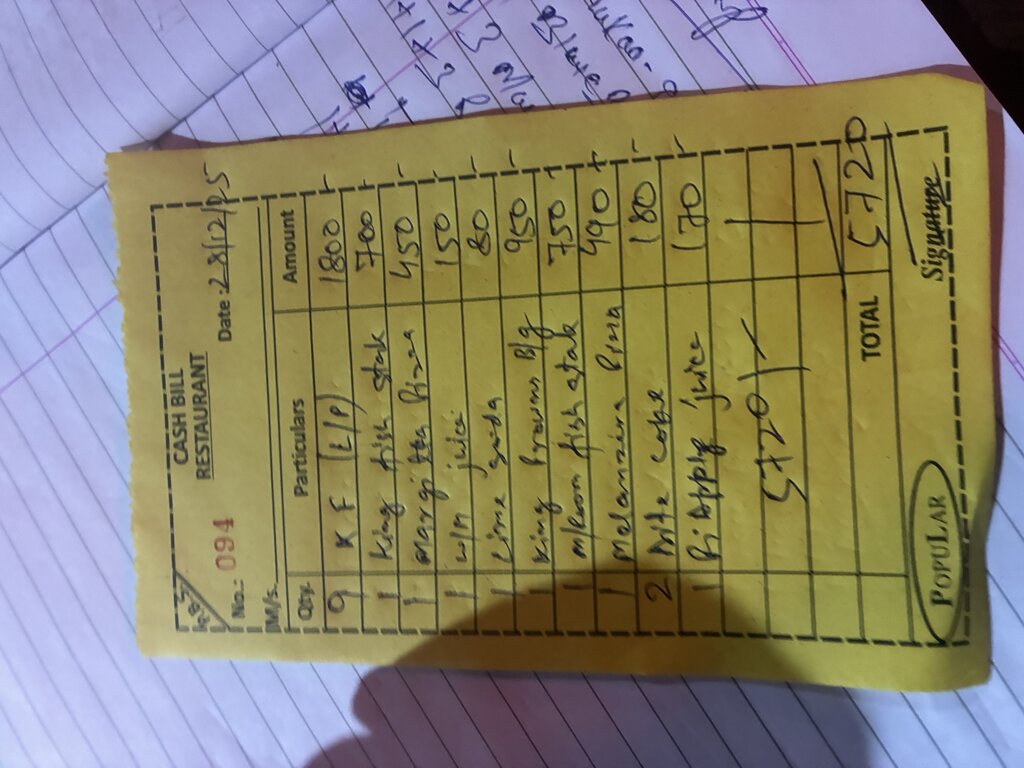 CASH BILL
RESTAURANT
No.: 094 Date: 28/12/25
M/s.
Qty. Particulars Amount
9 K F (L/P) 1800
1 King fish stak 700
1 margitta Pizza 450
1 w/m juice 150
1 Lime soda 80
1 King Prawns B/g 950
1 m/room fish stak 750
1 Melanzira Pizza 490
2 Dite coke 180
1 PinApply juice 170
5720/
TOTAL 5720
POPULAR Signature